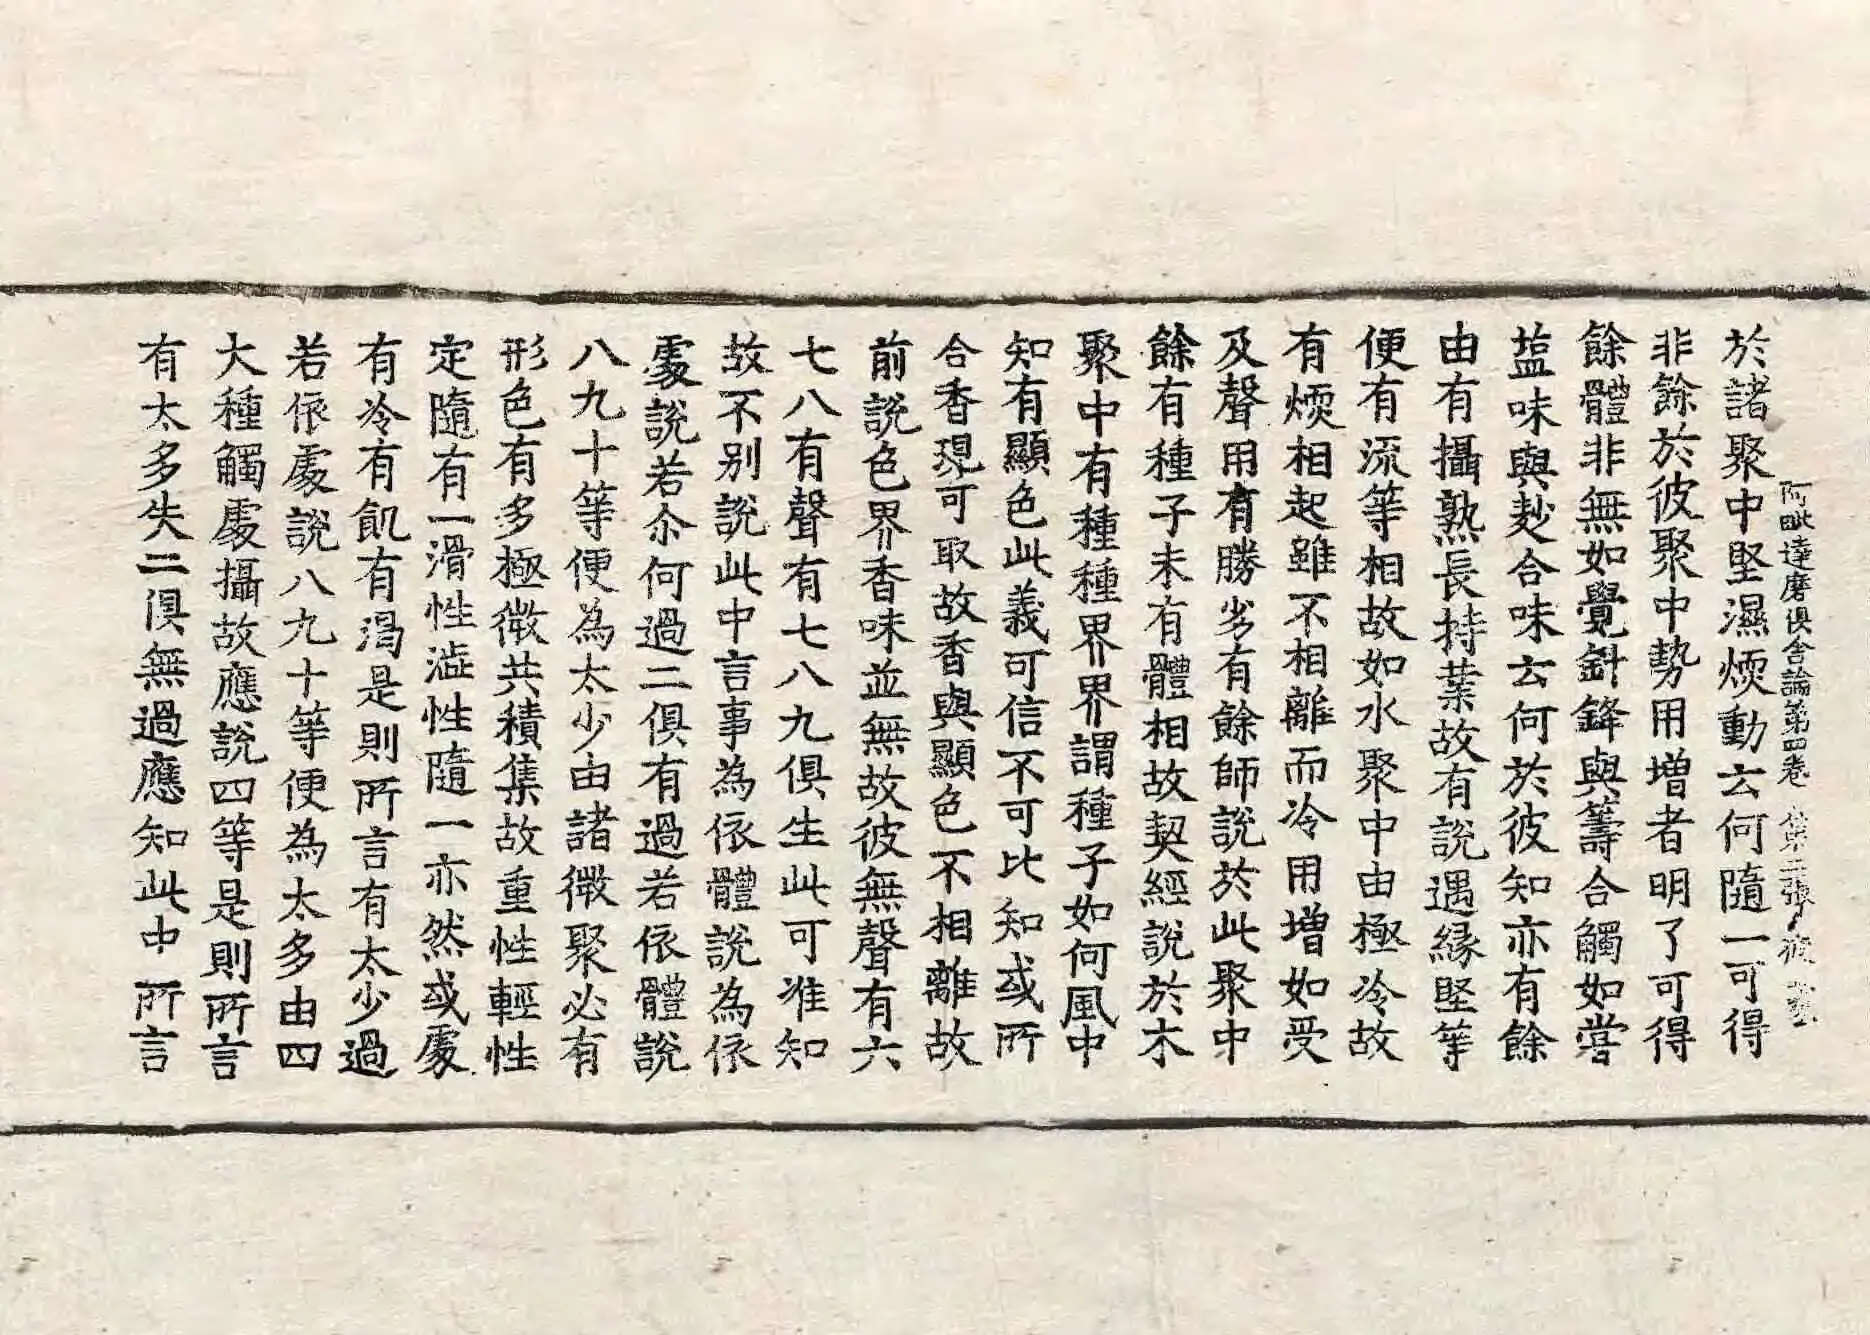 阿毗達磨俱舍論第四卷　第三張　彼
於諸聚中堅濕煗動云何隨一可得
非餘於彼聚中勢用增者明了可得
餘體非無如覺針鋒與籌合觸如甞
塩味與麨合味云何於彼知亦有餘
由有攝熟長持業故有說遇緣堅等
便有流等相故如水聚中由極冷故
有煗相起雖不相離而冷用增如受
及聲用有勝劣有餘師說於此聚中
餘有種子未有體相故契經說於木
聚中有種種界界謂種子如何風中
知有顯色此義可信不可比知或所
合香現可取故香與顯色不相離故
前說色界香味並無故彼無聲有六
七八有聲有七八九俱生此可准知
故不別說此中言事為依體說為依
處說若尒何過二俱有過若依體說
八九十等便為太少由諸微聚必有
形色有多極微共積集故重性輕性
定隨有一滑性澁性隨一亦然或處
有冷有飢有渴是則所言有太少過
若依處說八九十等便為太多由四
大種觸處攝故應說四等是則所言
有太多失二俱無過應知此中所言